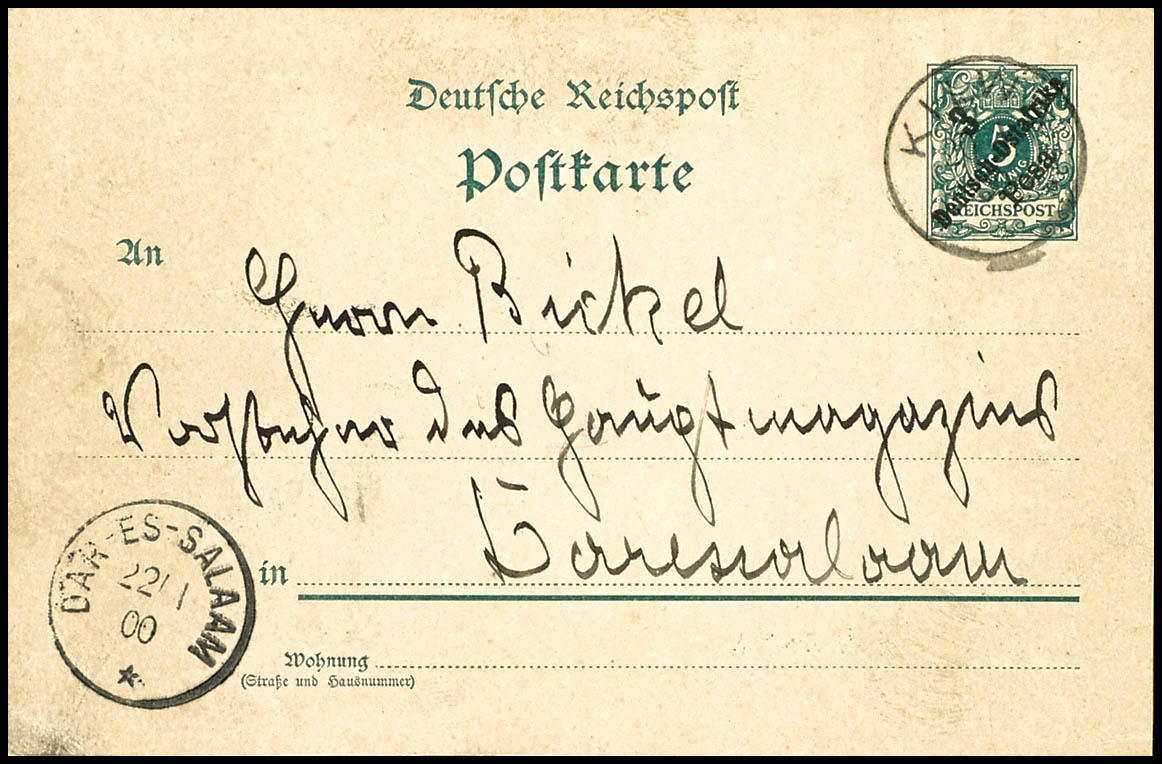 Deutsche Reichspost
Postkarte
3
5
PFENNIG
Deutsch-Ostafrika
Pesa
REICHSPOST
An
Herrn Bickel
Vorsteher des Hauptmagazins
in Daressalaam
DAR-ES-SALAAM
22/1
00
Wohnung
(Straße und Hausnummer)